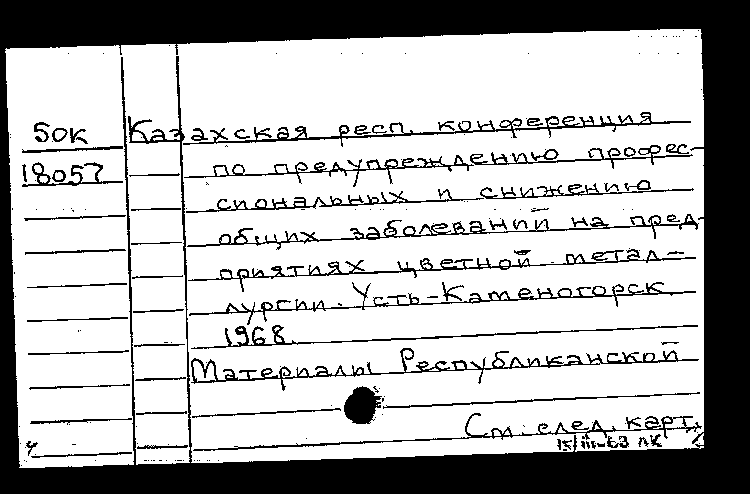 50к Казахская респ. конференция
18057 по предупреждению профес-
сиональных и снижению
общих заболеваний на пред-
приятиях цветной метал-
лургии. Усть-Каменогорск
1968.
Материалы Республиканской
См. след. карт.
15/III-63 ЛК